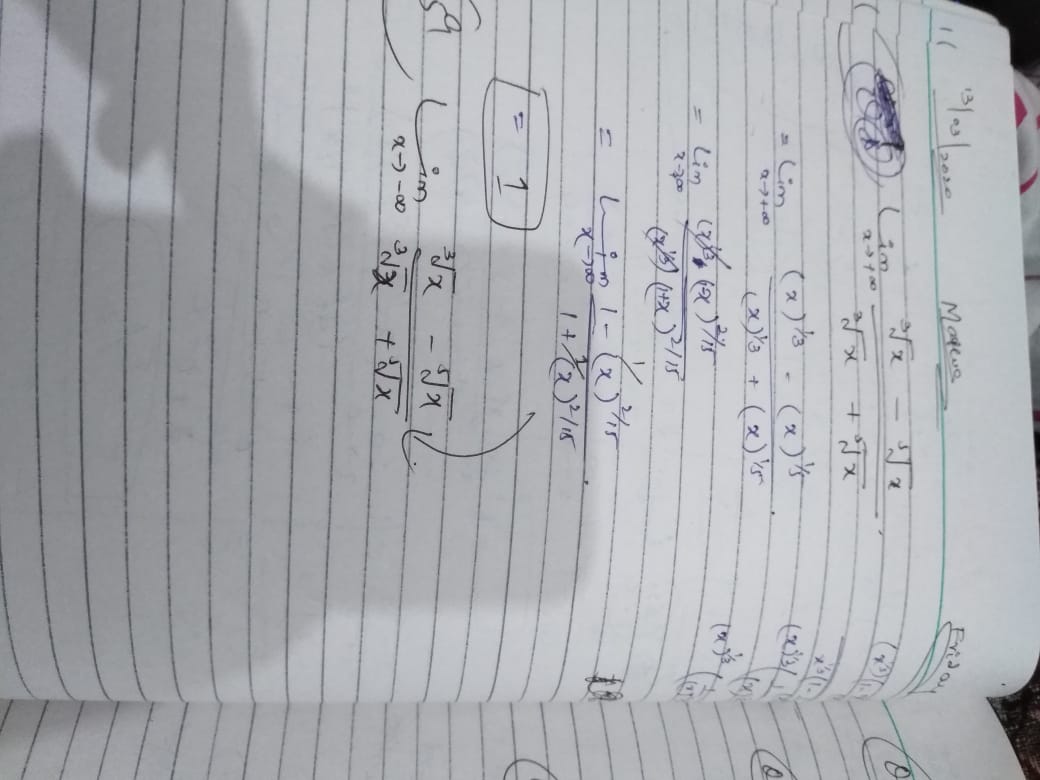 13/03/2020
Friday
Lim x→+∞ ∛x - ⁵√x / ∛x + ⁵√x
= Lim x→+∞ (x)^1/3 - (x)^1/5 / (x)^1/3 + (x)^1/5
= Lim x→∞ (x^1/3) (-x)^2/15 / (x^1/3) (1+x)^2/15
= Lim x→∞ 1 - 1/(x)^2/15 / 1 + 1/(x)^2/15
= 1
Lim x→-∞ ∛x - ⁵√x / ∛x + ⁵√x